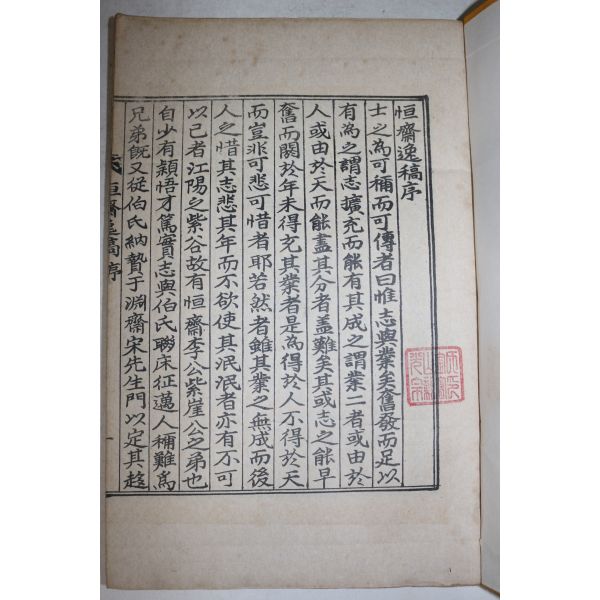 恒齋逸稿序
士之為可稱而可傳者曰惟志與業矣奮發而足以
有為之謂志擴充而能有其成之謂業二者或由於
人或由於天而能盡其分者盖難矣其或志之能早
奮而閼於年未得充其業者是為得於人不得於天
而豈非可悲可惜者耶若然者雖其業之無成而後
人之惜其志悲其年而不欲使其泯泯者亦有不可
以已者江陽之紫谷故有恒齋李公紫崖公之弟也
自少有穎悟才篤實志與伯氏聯床征邁人稱難為
兄弟既又從伯氏納贄于淵齋宋先生門以定其趍
恒齋逸稿序